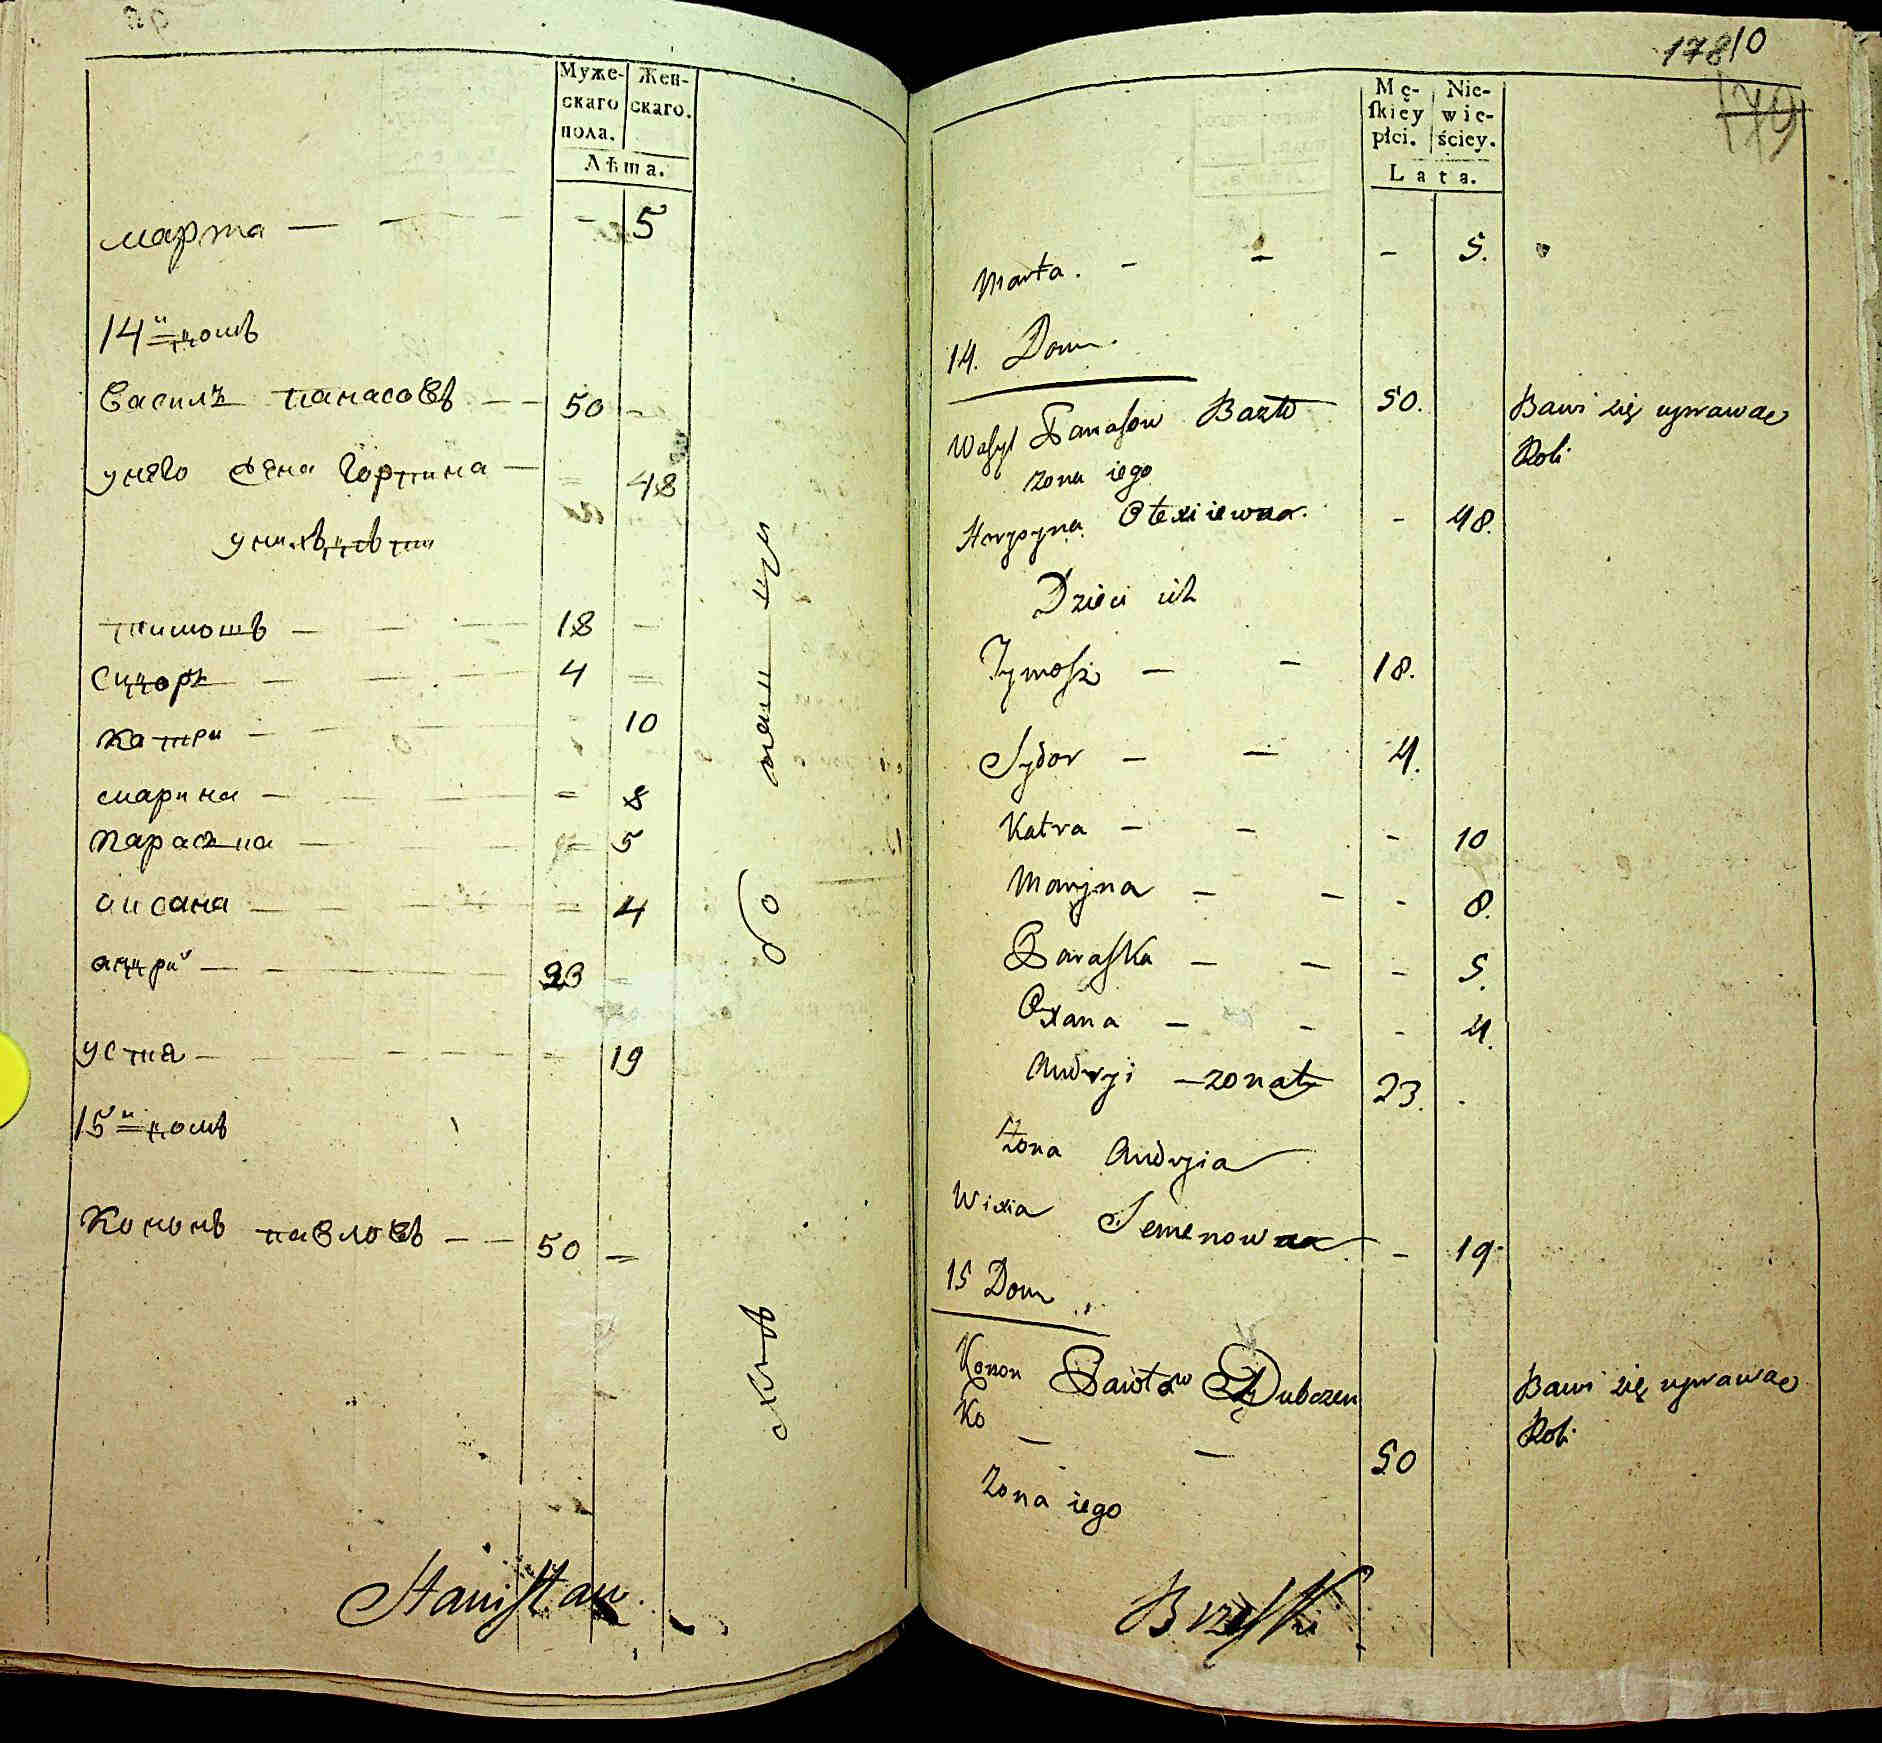 Муже-
скаго
пола.
Жен-
скаго.
Лѣта.
марта — — — 5
14й домъ
Василъ панасовъ — — 50 —
унего жена Горпина — = 48
унихъ дѣти
тимошъ — — — 18 —
Сидоръ — — — 4 =
катри — — — 10
марина — — — = 8
параска — — — = 5
аксана — — — = 4
андрий — — — 23 —
устя — — — = 19
15й домъ
Кононъ павловъ — — 50 =
Stanisław
178 10
179
Mę-
skiey
płci.
Nie-
wie-
ściey.
Lata.
Marta. — — — 5.
14. Dom.
Wasyl Panasow Bazło 50. Bawi się uprawąe
Roli
żona iego
Horpyna Olexiiewna. — 48.
Dzieci ich
Tymosz — — 18.
Sydor — — 4.
Katra — — — 10
Maryna — — — 8.
Paraska — — — 5.
Oxana — — — 4.
Andryi — żonaty 23.
żona Andryia
Wixia Semenowna — 19.
15 Dom
Konon Pawłow Dubczen
Ko — — 50
Bawi się uprawąe
Roli
Żona iego
Brzeski